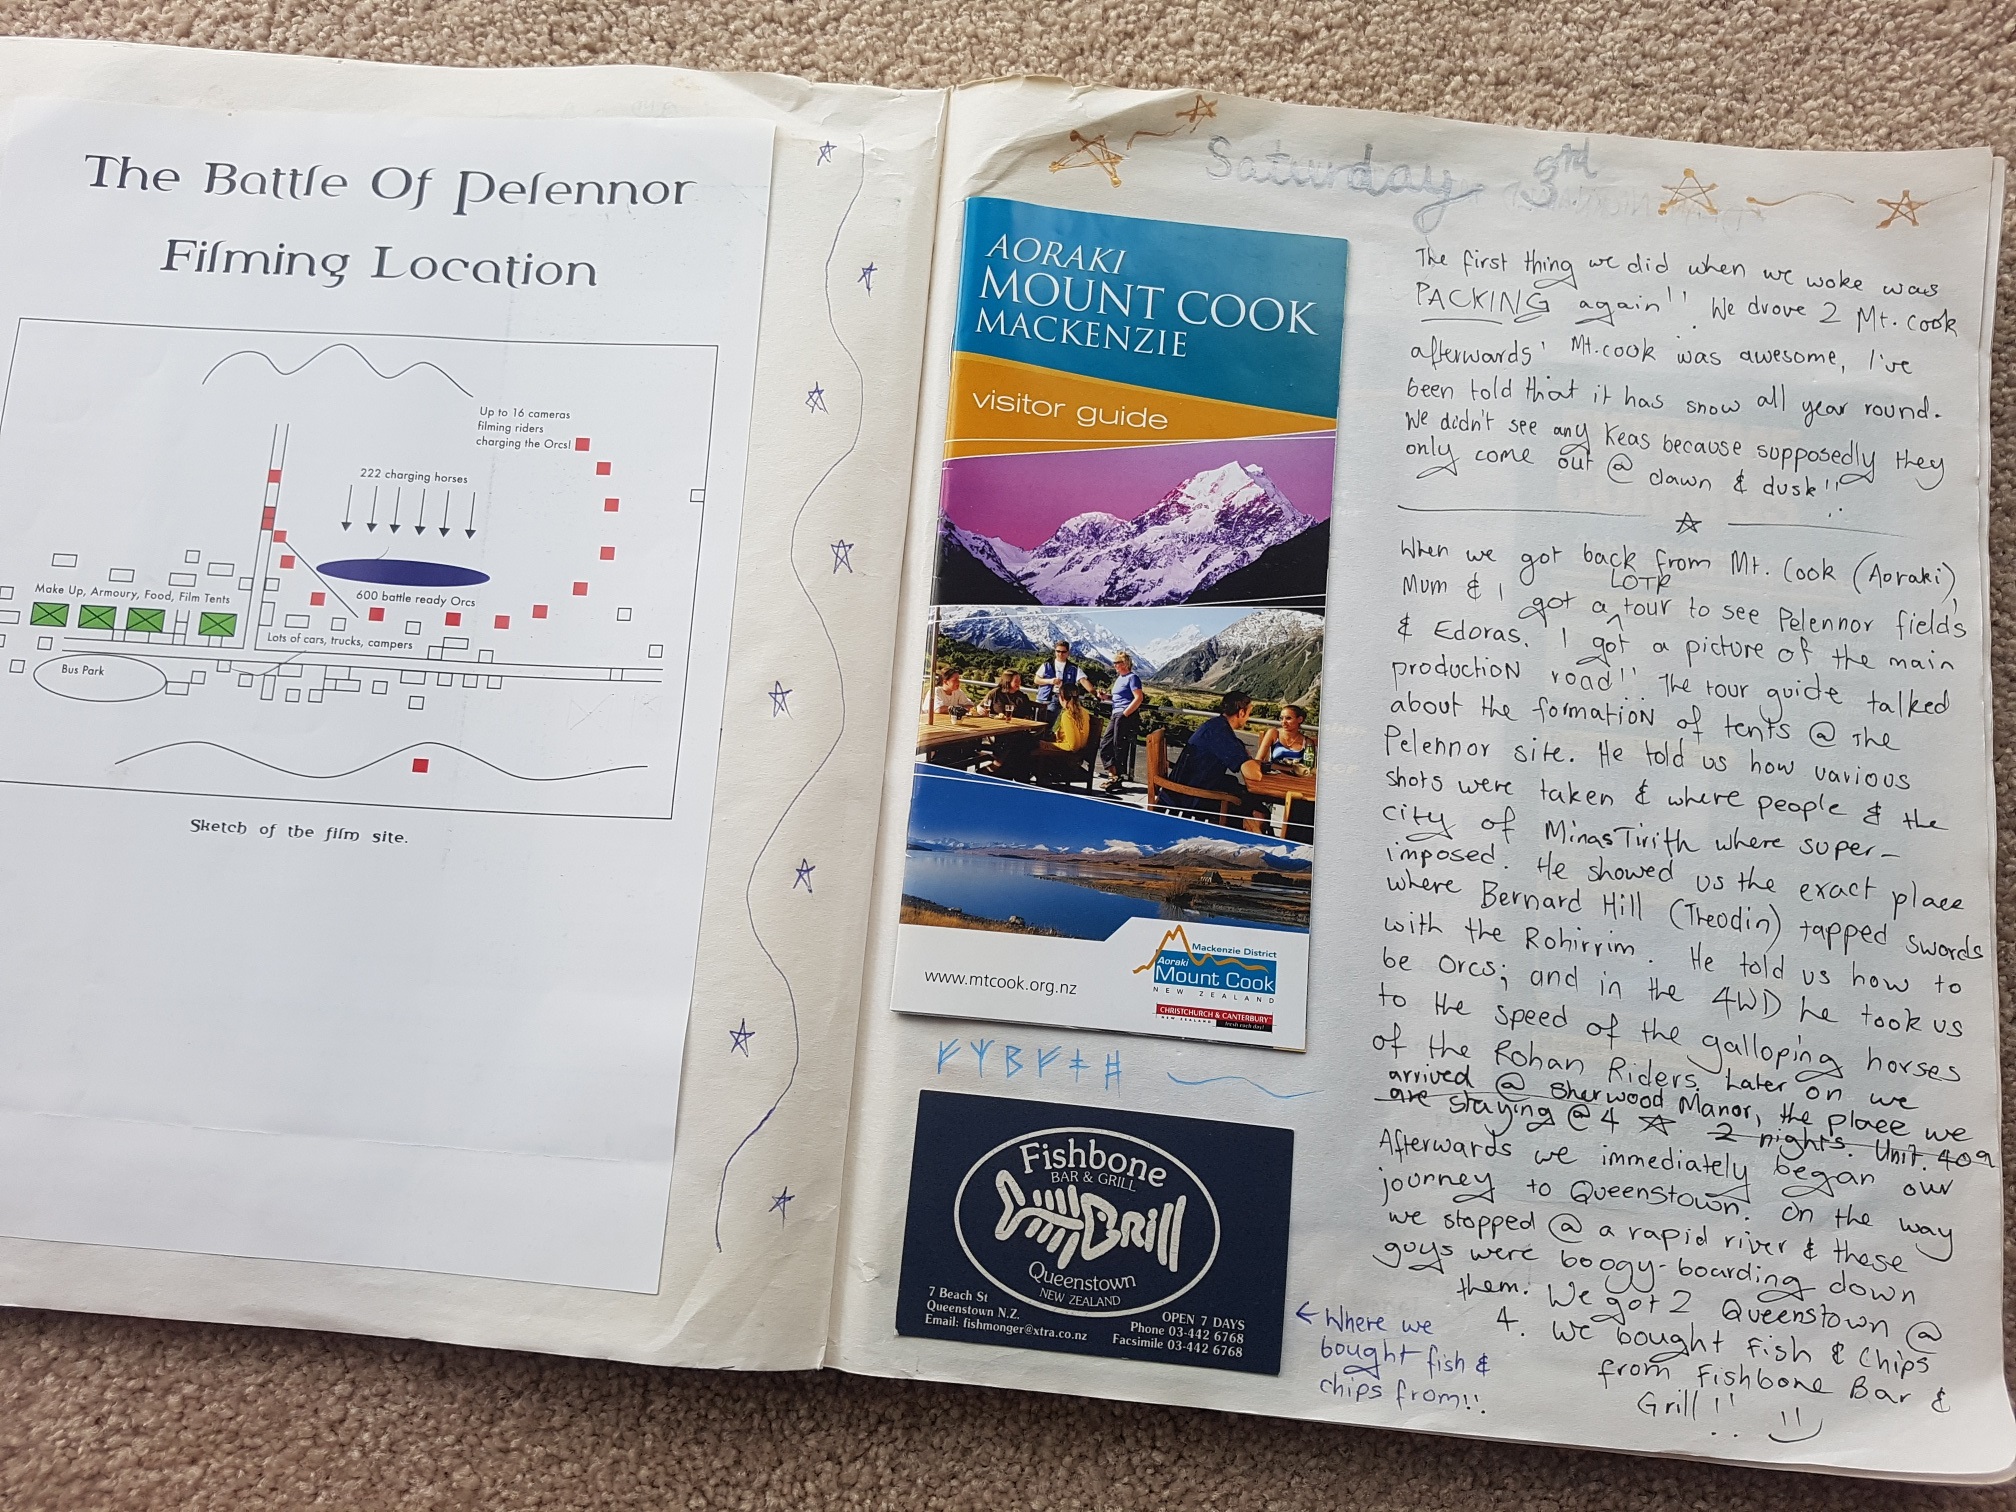 The Battle Of Pelennor
Filming Location
Up to 16 cameras
filming riders
charging the Orcs!
222 charging horses
600 battle ready Orcs
Make Up, Armoury, Food, Film Tents
Lots of cars, trucks, campers
Bus Park
Sketch of the film site.
Saturday 3rd
AORAKI
MOUNT COOK
MACKENZIE
visitor guide
www.mtcook.org.nz
Mackenzie District
Aoraki
Mount Cook
NEW ZEALAND
CHRISTCHURCH & CANTERBURY
NEW ZEALAND fresh each day!
Fishbone
BAR & GRILL
GRill
Queenstown
NEW ZEALAND
7 Beach St
Queenstown N.Z.
Email: fishmonger@xtra.co.nz
OPEN 7 DAYS
Phone 03-442 6768
Facsimile 03-442 6768
← Where we
bought fish &
chips from!!
The first thing we did when we woke was
PACKING again!! We drove 2 Mt. Cook
afterwards! Mt. cook was awesome, I've
been told that it has snow all year round.
We didn't see any Keas because supposedly they
only come out @ dawn & dusk!!
When we got back from Mt. Cook (Aoraki),
Mum & I got a LOTR tour to see Pelennor fields
& Edoras. I got a picture of the main
production road!! The tour guide talked
about the formation of tents @ the
Pelennor site. He told us how various
shots were taken & where people & the
city of MinasTirith where super-
imposed. He showed us the exact place
where Bernard Hill (Theodin) tapped swords
with the Rohirrim. He told us how to
be Orcs; and in the 4WD he took us
to the speed of the galloping horses
of the Rohan Riders. Later on we
arrived @ Sherwood Manor, the place we
are staying @ 4 2 nights. Unit. 409
Afterwards we immediately began our
journey to Queenstown. On the way
we stopped @ a rapid river & these
guys were boogy-boarding down
them. We got 2 Queenstown @
4. We bought Fish & Chips
from Fishbone Bar &
Grill!!